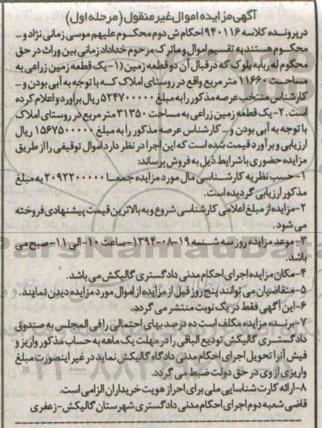 آگهی مزایده اموال غیر منقول (مرحله اول)
در پرونده کلاسه ۹۴۰۱۱۶ احکام ش دوم محکوم علیهم موسی زمانی نژاد و...
محکوم هستند به تقسیم اموال و ماترک مرحوم خداداد زمانی بین وراث در حق
محکوم له ربابه بلوک که در قبال آن دو قطعه زمین (۱- یک قطعه زمین زراعی به
مساحت ۱۱۶۶۰ متر مربع واقع در روستای املاک که با توجه به آبی بودن و...
کارشناس منتخب عرصه مذکور را به مبلغ ۵۲۴۷۰۰۰۰۰ ریال برآورد و اعلام کرده
است. ۲- یک قطعه زمین زراعی به مساحت ۳۱۳۵۰ متر مربع در روستای املاک
با توجه به آبی بودن و... کارشناس عرصه مذکور را به مبلغ ۱۵۶۷۵۰۰۰۰۰ ریال
ارزیابی و برآورد قیمت شده است که این اجرا در نظر دارد اموال توقیفی را از طریق
مزایده حضوری با شرایط ذیل به فروش برساند:
۱- حسب نظریه کارشناسی مال مورد مزایده جمعا ۲۰۹۲۲۰۰۰۰۰ به مبلغ
مذکور ارزیابی گردیده است.
۲- مزایده از مبلغ اعلامی کارشناسی شروع و به بالاترین قیمت پیشنهادی فروخته
می شود.
۳- موعد مزایده روز سه شنبه ۱۹-۰۸-۱۳۹۴- ساعت ۱۰- الی ۱۱- صبح می
باشد.
۴- مکان مزایده اجرای احکام مدنی دادگستری گالیکش می باشد.
۵- متقاضیان می توانند پنج روز قبل از مزایده از اموال مورد مزایده دیدن نمایند.
۶- این آگهی فقط در یک نوبت منتشر می گردد.
۷- برنده مزایده مکلف است ده درصد بهای احتمالی را فی المجلس به صندوق
دادگستری گالیکش تودیع الباقی را در مهلت یک ماهه به حساب مذکور واریز و
فیش آنرا تحویل اجرای احکام مدنی دادگاه گالیکش نماید در غیر اینصورت مبلغ
واریزی از وی در حق دولت ضبط می گردد.
۸- ارائه کارت شناسایی ملی برای احراز هویت خریداران الزامی است.
قاضی شعبه دوم اجرای احکام مدنی دادگستری شهرستان گالیکش- زعفری